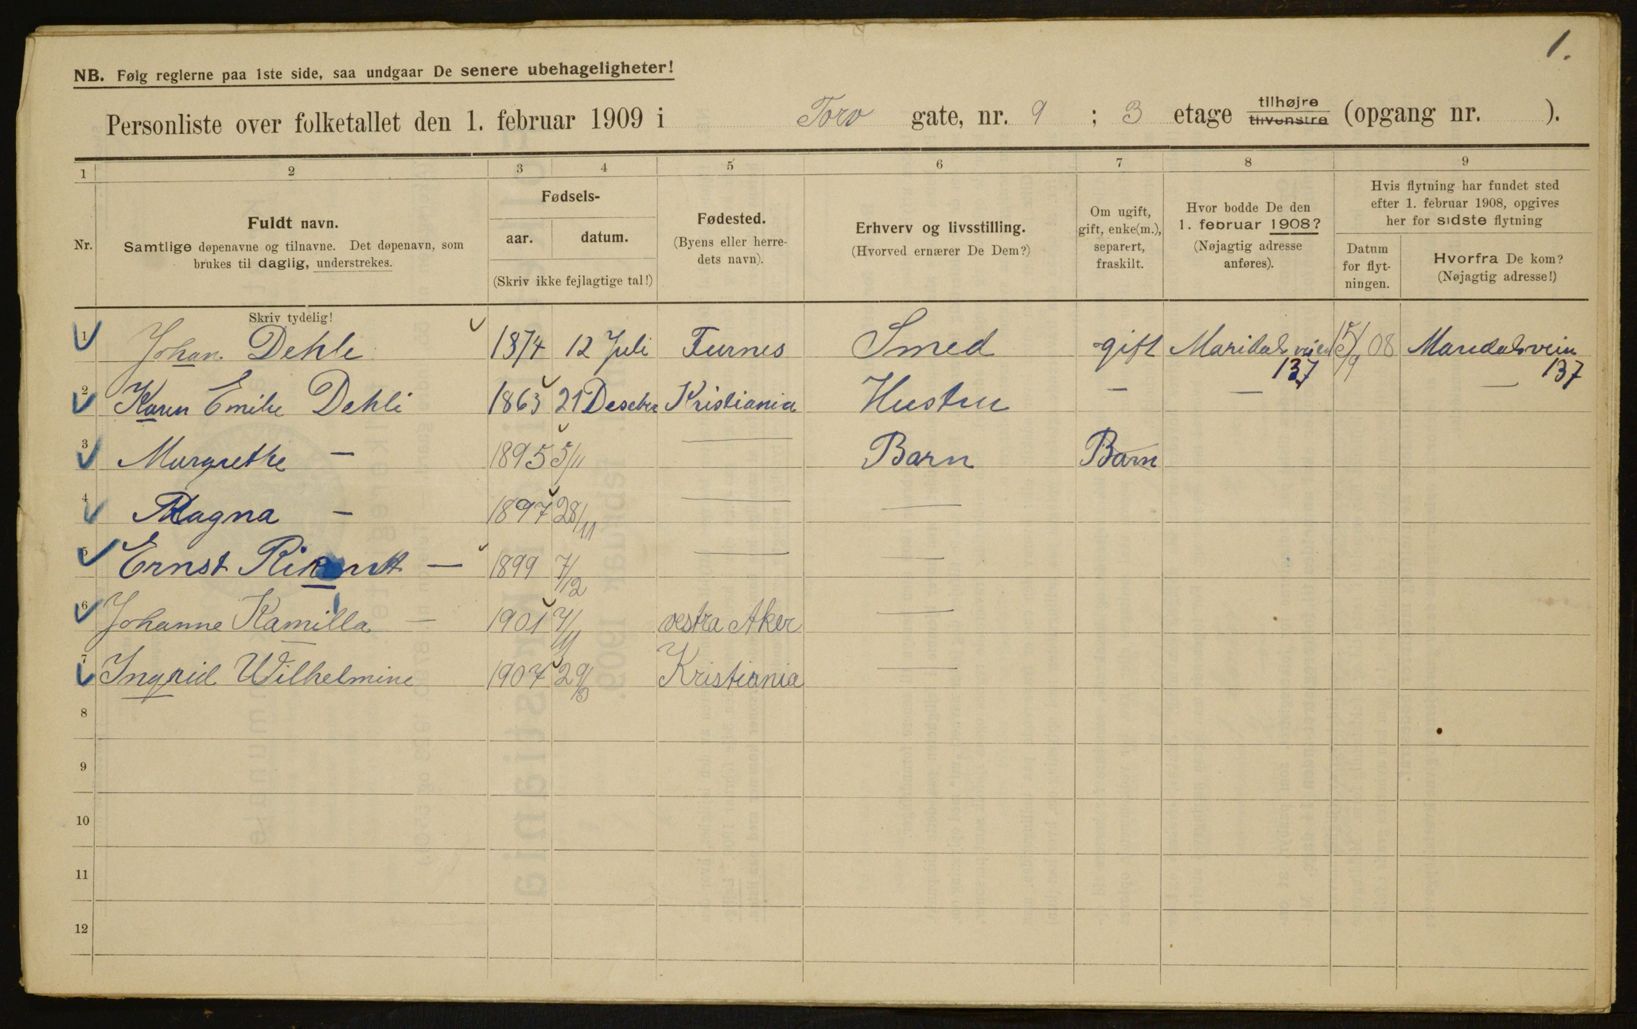 1.
NB. Følg reglerne paa 1ste side, saa undgaar De senere ubehageligheter!
Personliste over folketallet den 1. februar 1909 i Torv gate, nr. 9 ; 3 etage tilhøjre tilvenstre (opgang nr. ).
1 2 3 4 5 6 7 8 9
Nr.
Fuldt navn.
Samtlige døpenavne og tilnavne. Det døpenavn, som
brukes til daglig, understrekes.
Skriv tydelig!
Fødsels-
aar. datum.
(Skriv ikke fejlagtige tal!)
Fødested.
(Byens eller herre-
dets navn).
Erhverv og livsstilling.
(Hvorved ernærer De Dem?)
Om ugift,
gift, enke(m.),
separert,
fraskilt.
Hvor bodde De den
1. februar 1908?
(Nøjagtig adresse
anføres).
Hvis flytning har fundet sted
efter 1. februar 1908, opgives
her for sidste flytning
Datum
for flyt-
ningen.
Hvorfra De kom?
(Nøjagtig adresse!)
1 Johan Dehle 1874 12 Juli Furnes Smed gift Maridalsveien 137 08 Maridalsvein 137
2 Karen Emilie Dehli 1863 21 Kristiania Hustru — — —
3 Margrethe — 1895 5/11 — Barn Barn
4 Ragna — 1897 28/11 — —
5 Ernst — 1899 7/12 — —
6 Johanne Kamilla — 1901 7/11 vestra Aker —
7 Ingrid Wilhelmine 1907 29/3 Kristiania —
8
9
10
11
12